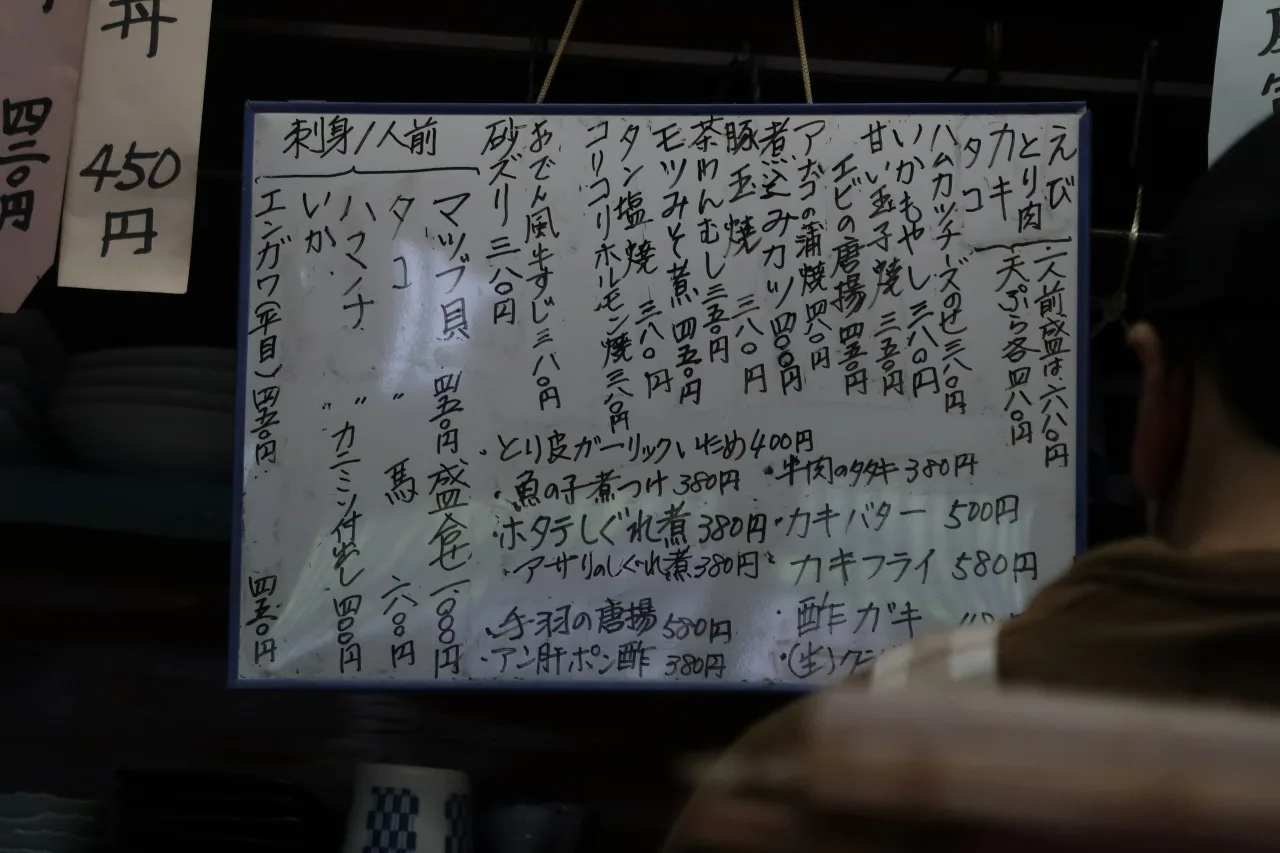 えび
とり肉
カキ
タコ
二人前盛は六八〇円
天ぷら各四八〇円
ハムカツチーズのせ三八〇円
いかもやし三八〇円
甘い玉子焼三五〇円
エビの唐揚四五〇円
アナゴの蒲焼四八〇円
煮込みカツ四〇〇円
豚玉焼三八〇円
茶わんむし三五〇円
モツみそ煮四五〇円
タン塩焼三八〇円
コリコリホルモン焼三八〇円
おでん風牛すじ三八〇円
砂ズリ三八〇円
刺身1人前
マツブ貝
タコ
ハマチ
いか
エンガワ(平目)四五〇円
四五〇円
〃
〃
〃
盛合せ一、〇〇〇円
馬 六〇〇円
カニミソ付出し四〇〇円
四五〇円
・とり皮ガーリックいため400円
・魚の子煮つけ380円
・牛肉のタタキ380円
・ホタテしぐれ煮380円
・カキバター 500円
・アサリのしぐれ煮380円
カキフライ 580円
・手羽の唐揚580円
・酢ガキ
・アン肝ポン酢 380円
・(生)
丼 450円
四二〇円